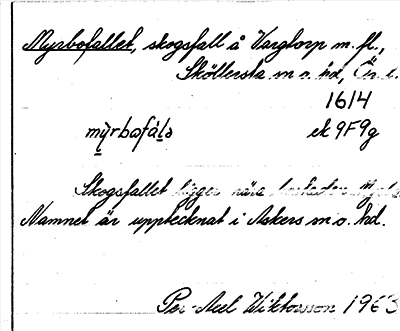 Myrbofallet, skogsfall å Vargtorp m. fl.,
Sköllersta sn o. hd, Ör. l.
1614
mỳrbofála̱ ek 9F9g
Skogsfallet ligger nära
Namnet är upptecknat i Askers sn o. hd.
Per-Axel Wiktorsson 1963